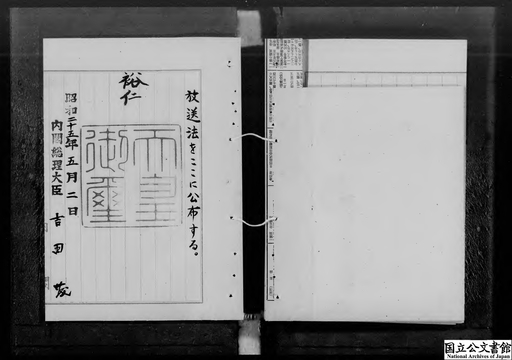 放送法をここに公布する。
裕仁
天皇御璽
昭和二十五年五月二日
内閣総理大臣 吉田茂
国立公文書館
National Archives of Japan